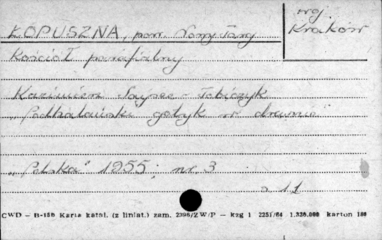 woj.
ŁOPUSZNA, pow. Nowy Targ Kraków
Kościół parafialny
Kazimierz Saysse-Tobiczyk
„Podhalański gotyk w drewnie"
„Polska" 1955; nr. 3
s. 11
CWD - B-156 Karta katal. (z liniat.) zam. 2396/Z W/P - kzg 1 2251/64 1.320.000 karton 180